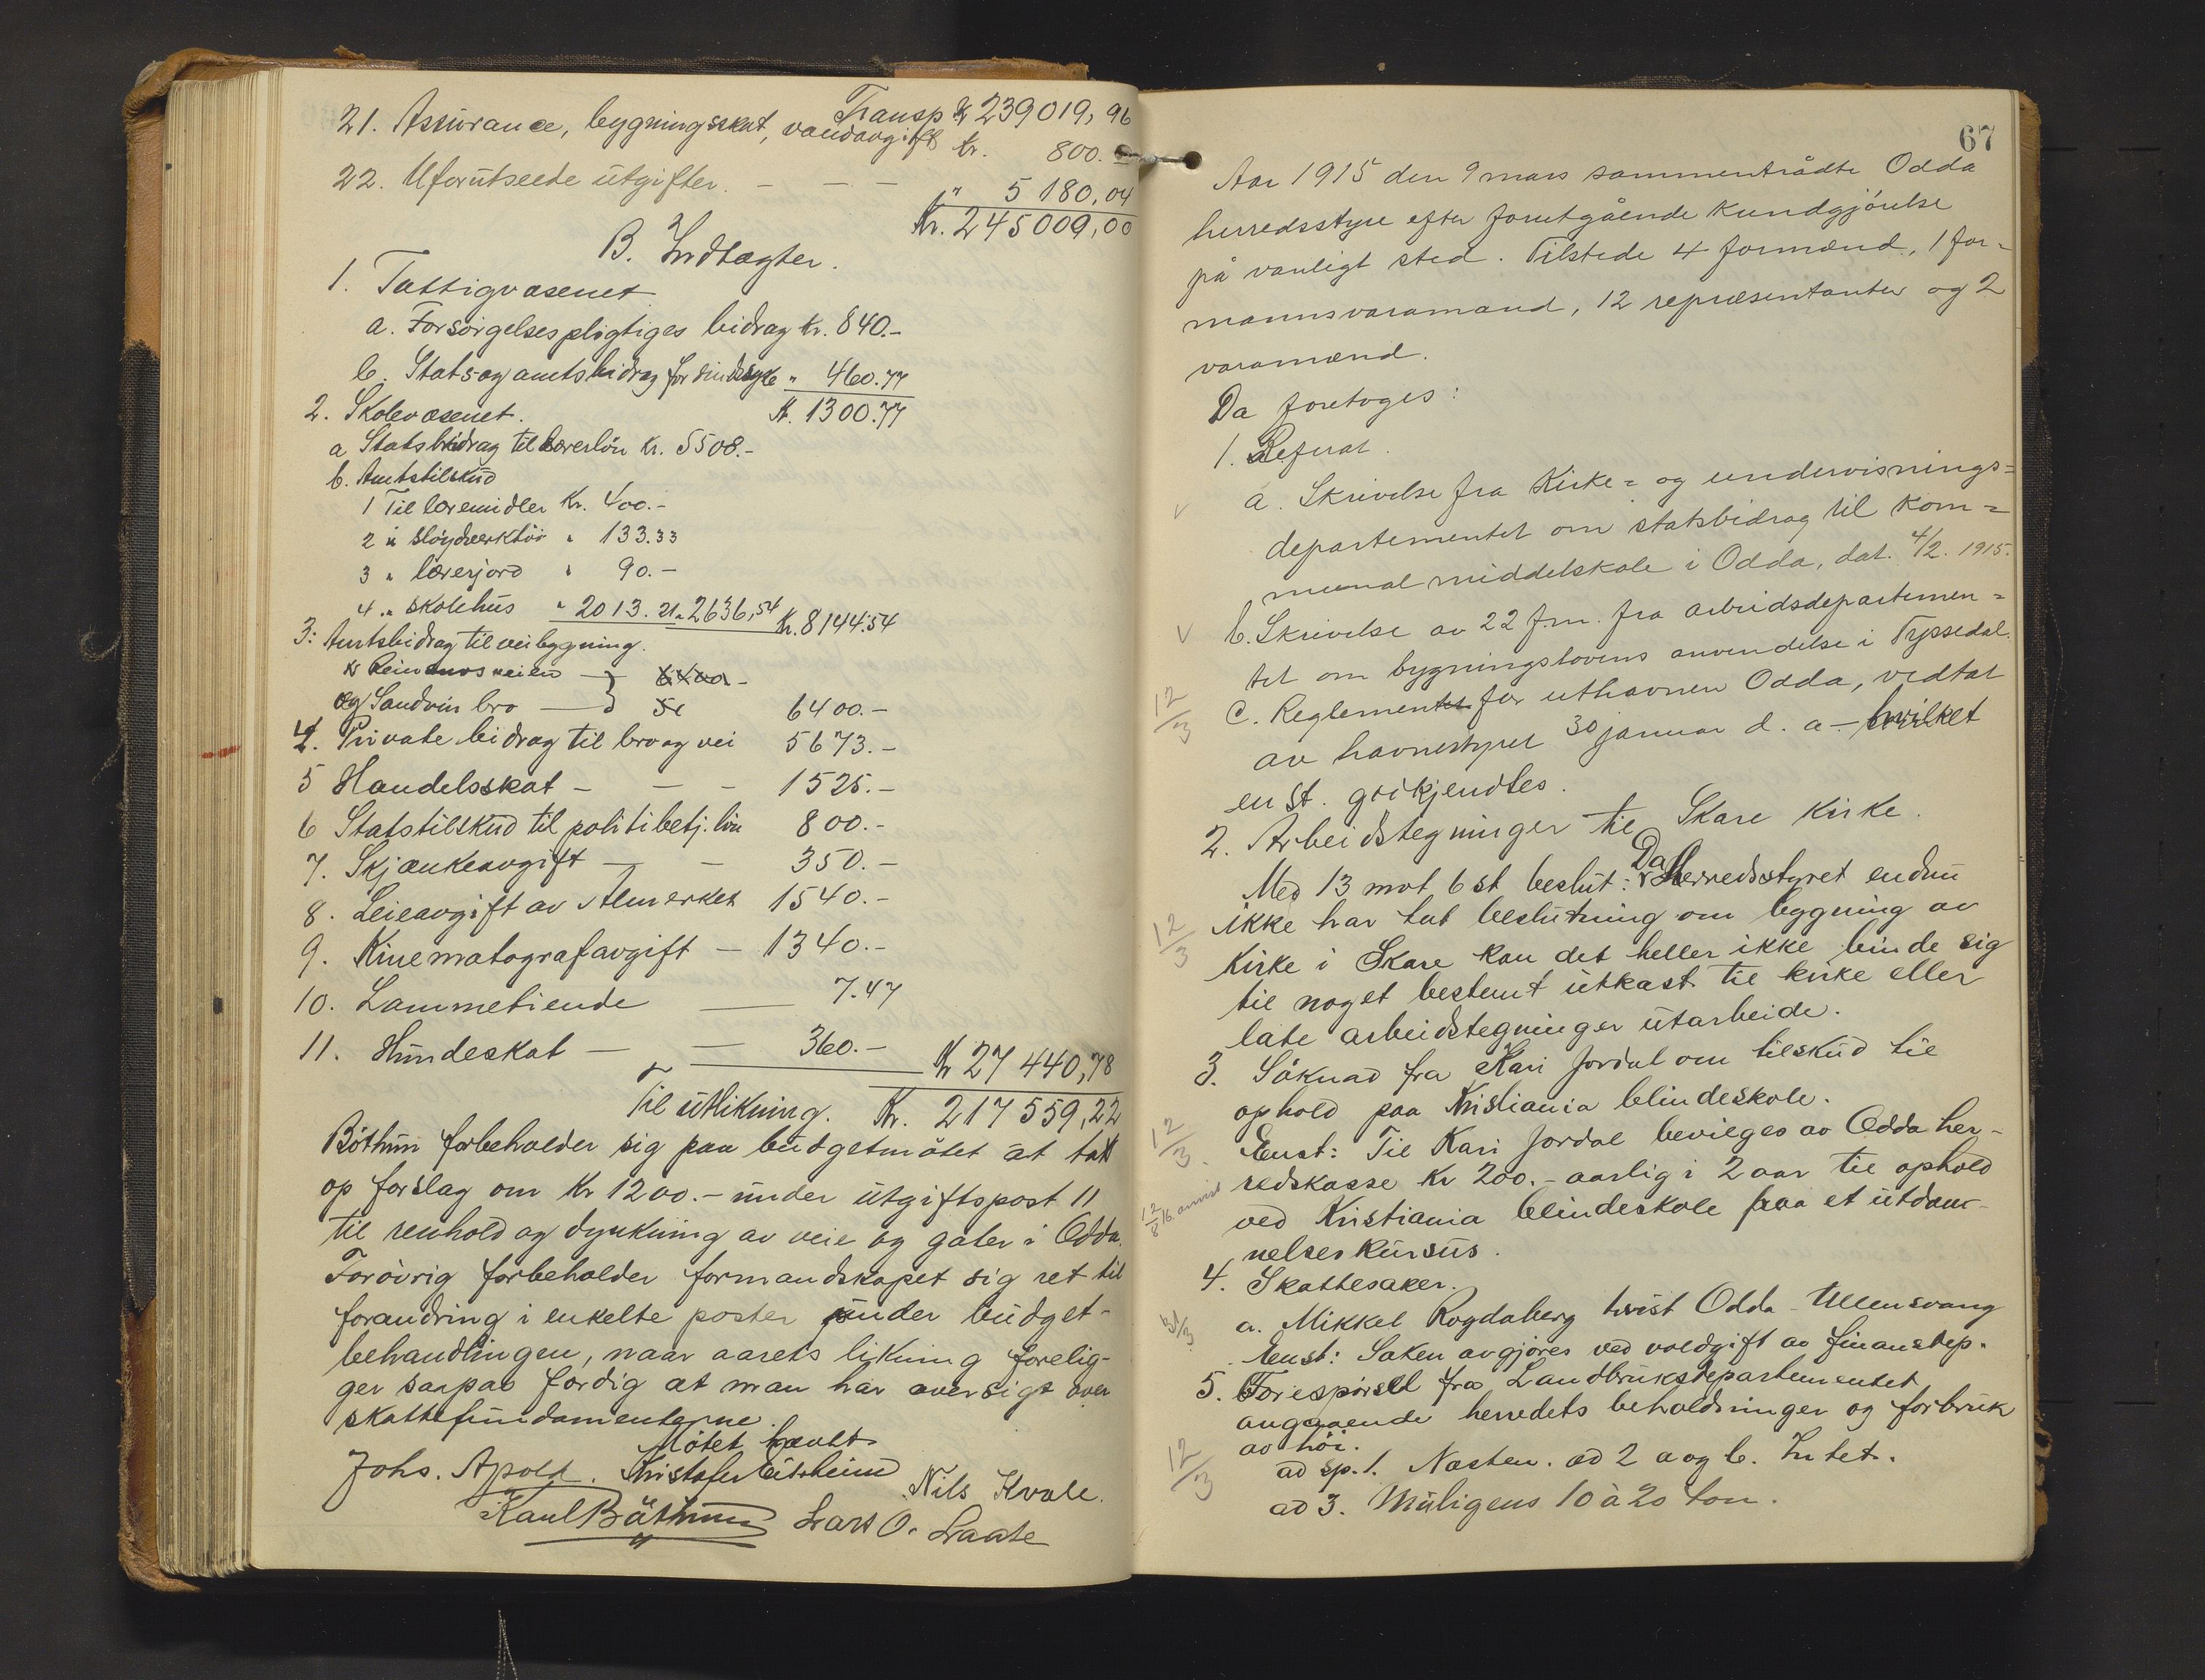 Transp kr 239019,96
21. Assurance, bygningsskat, vandavgift kr. 800.-
22. Uforutseede utgifter. - - - " 5 180,04
Kr. 245009,00
B. Indtægter.
1. Fattigvæsenet
a. Forsørgelsespligtiges bidrag kr. 840.-
b. Stats og amtsbidrag for sindssyke " 460.77
kr. 1300.77
2. Skolevæsenet.
a Statsbidrag til lærerløn kr. 5508.-
b. Amtstilskud
1 Til læremidler kr. 400.-
2 " sløydverktøi " 133.33
3 " lærerjord " 90.-
4 " skolehus " 2013.21 " 2636,54 Kr. 8144.54
3: Amtsbidrag til veibygning.
og Sandvin bro — 6400.-
4. Private bidrag til bro og vei 5673.-
5 Handelsskat - - - 1525.-
6 Statstilskud til politibetj. løn 800.-
7. Skjænkeavgift - - 350.-
8. Leieavgift av Almerket 1540.-
9. Kinematografavgift — 1340.-
10. Lammetiende — 7.47
11. Hundeskat — — 360.- Kr 27 440,78
Til utlikning. Kr. 217 559,22
Bøthun forbeholder sig paa budgetmøtet at tat
op forslag om kr 1200.- under utgiftspost 11
til renhold og dynkning av veie og gater i Odda.
Forøvrig forbeholder formandskapet sig ret til
forandring i enkelte poster under budget-
behandlingen, naar aarets likning forelig-
ger saapas færdig at man har oversigt over
skattefundamenterne.
Møtet hævet
Johs. Apold. Kristofer Eitrheim Nils Kvale.
Karl Bøthun Lars O. Laate
67
Aar 1915 den 9 mars sammentrådte Odda
herredsstyre efter forutgående kundgjørelse
på vanligt sted. Tilstede 4 formænd, 1 for-
mannsvaramand, 12 repræsentanter og 2
varamænd.
Da foretoges:
1. Referat.
a. Skrivelse fra Kirke= og undervisnings=
departementet om statsbidrag til kom=
munal middelskole i Odda, dat. 4/2. 1915.
b. Skrivelse av 22 f.m. fra arbeidsdepartemen=
tet om bygningslovens anvendelse i Tyssedal.
12/3 c. Reglement for uthavnen Odda, vedtat
av havnestyret 30 januar d. a. - hvilket
enst. godkjendtes.
2. Arbeidstegninger til Skare Kirke.
Med 13 mot 6 st beslut: Da Herredsstyret endnu
12/3 ikke har tat beslutning om bygning av
Kirke i Skare kan det heller ikke binde sig
til noget bestemt utkast til kirke eller
late arbeidstegninger utarbeide.
3. Søknad fra Kari Jordal om tilskud til
ophold paa Kristiania blindeskole.
12/3. Enst: Til Kari Jordal bevilges av Odda her-
redskasse kr 200.- aarlig i 2 aar til ophold
ved Kristiania blindeskole paa et utdan-
nelseskursus.
4. Skattesaker.
a. Mikkel Rogdaberg tvist Odda - Ullensvang
Enst: Saken avgjøres ved voldgift av finansdep.
5. Forespørsel fra Landbruksdepartementet
angaaende herredets beholdninger og forbruk
av høi.
12/3 ad sp. 1. Næsten. ad 2 a og b. Intet.
ad 3. Muligens 10 à 20 ton.